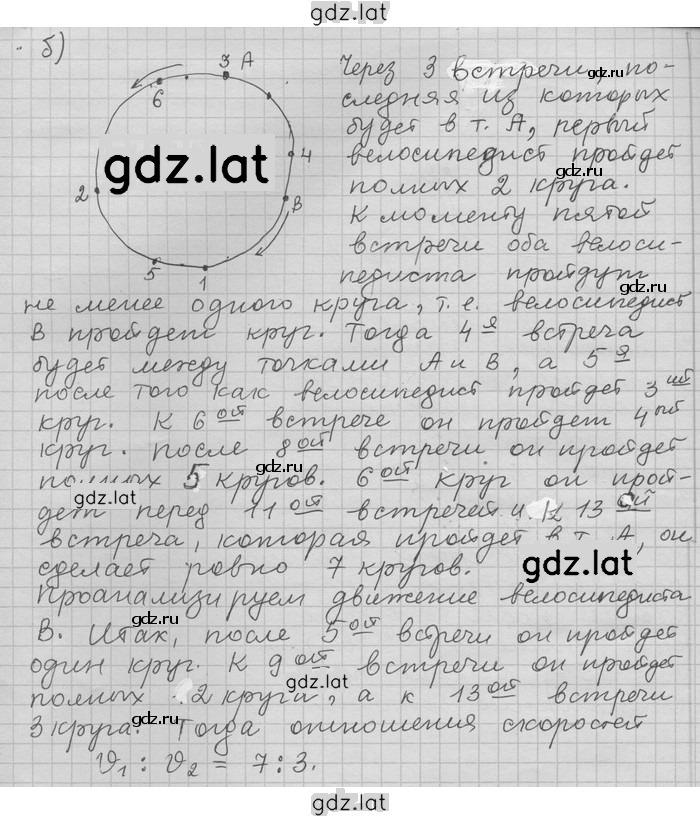 gdz.lat
б)
3 А
6
4
2
В
5
1
gdz.lat
Через 3 встречи, по-
следняя из которых
будет в т. А, первый
велосипедист пройдет
полных 2 круга.
К моменту пятой
встречи оба велоси-
педиста пройдут
не менее одного круга, т.е. велосипедист
В пройдет круг. Тогда 4я встреча
будет между точками А и В, а 5я
после того как велосипедист пройдет 3ий
круг. К 6ой встрече он пройдет 4ый
круг. после 8ой встречи он пройдет
полных 5 кругов. 6ой круг он прой-
дет перед 11ой встречей и к 13ой
встреча, которая пройдет в т. А, он
сделает ровно 7 кругов.
Проанализируем движение велосипедиста
В. Итак, после 5ой встречи он пройдет
один круг. К 9ой встречи он пройдет
полных 2 круга, а к 13ой встречи
3 круга. Тогда отношения скоростей
ϑ₁ : ϑ₂ = 7 : 3.
gdz.lat
gdz.lat
gdz.lat
gdz.lat
gdz.lat
gdz.lat
gdz.lat
gdz.lat
gdz.lat
gdz.lat
gdz.lat
gdz.lat
gdz.lat